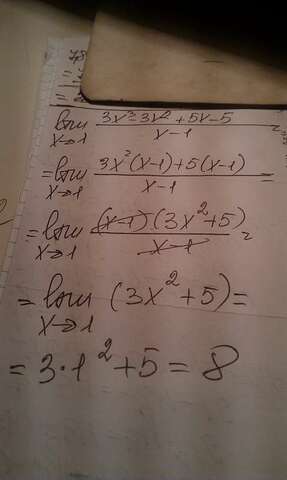 lim x→1 (3x³-3x²+5x-5)/(x-1) =
= lim x→1 (3x²(x-1)+5(x-1))/(x-1) =
= lim x→1 ((x-1)(3x²+5))/(x-1) =
= lim x→1 (3x²+5) =
= 3·1²+5 = 8